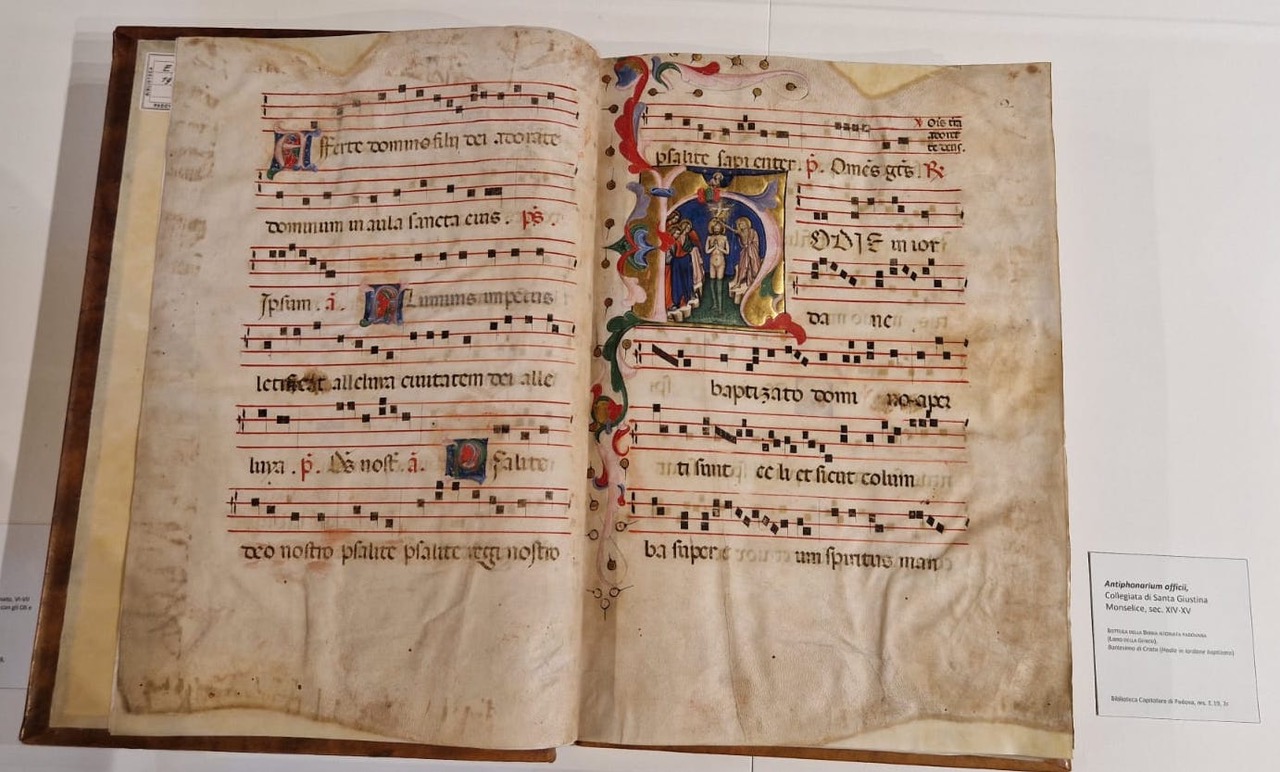 Afferte domino filii dei adorate
dominum in aula sancta eius. ps.
Ipsum. a. Fluminis impetus
letificat alleluia civitatem dei alle
luya. p. Ds nost. a. Psalite
deo nostro psalite psalite regi nostro
psalite sapienter. p. Omes gtes. R
V Ois tra
adoret
te deus.
ODIE in ior
da ne
baptizato domi no aper
ti sunt celi et sicut colum
ba super e um spiritus man
Antiphonarium officii,
Collegiata di Santa Giustina
Monselice, sec. XIV-XV
Bottega della Bibbia istoriata padovana
(Libro della Genesi),
Battesimo di Cristo (Hodie in Iordane baptizato)
Biblioteca Capitolare di Padova, ms. E 19, 2r